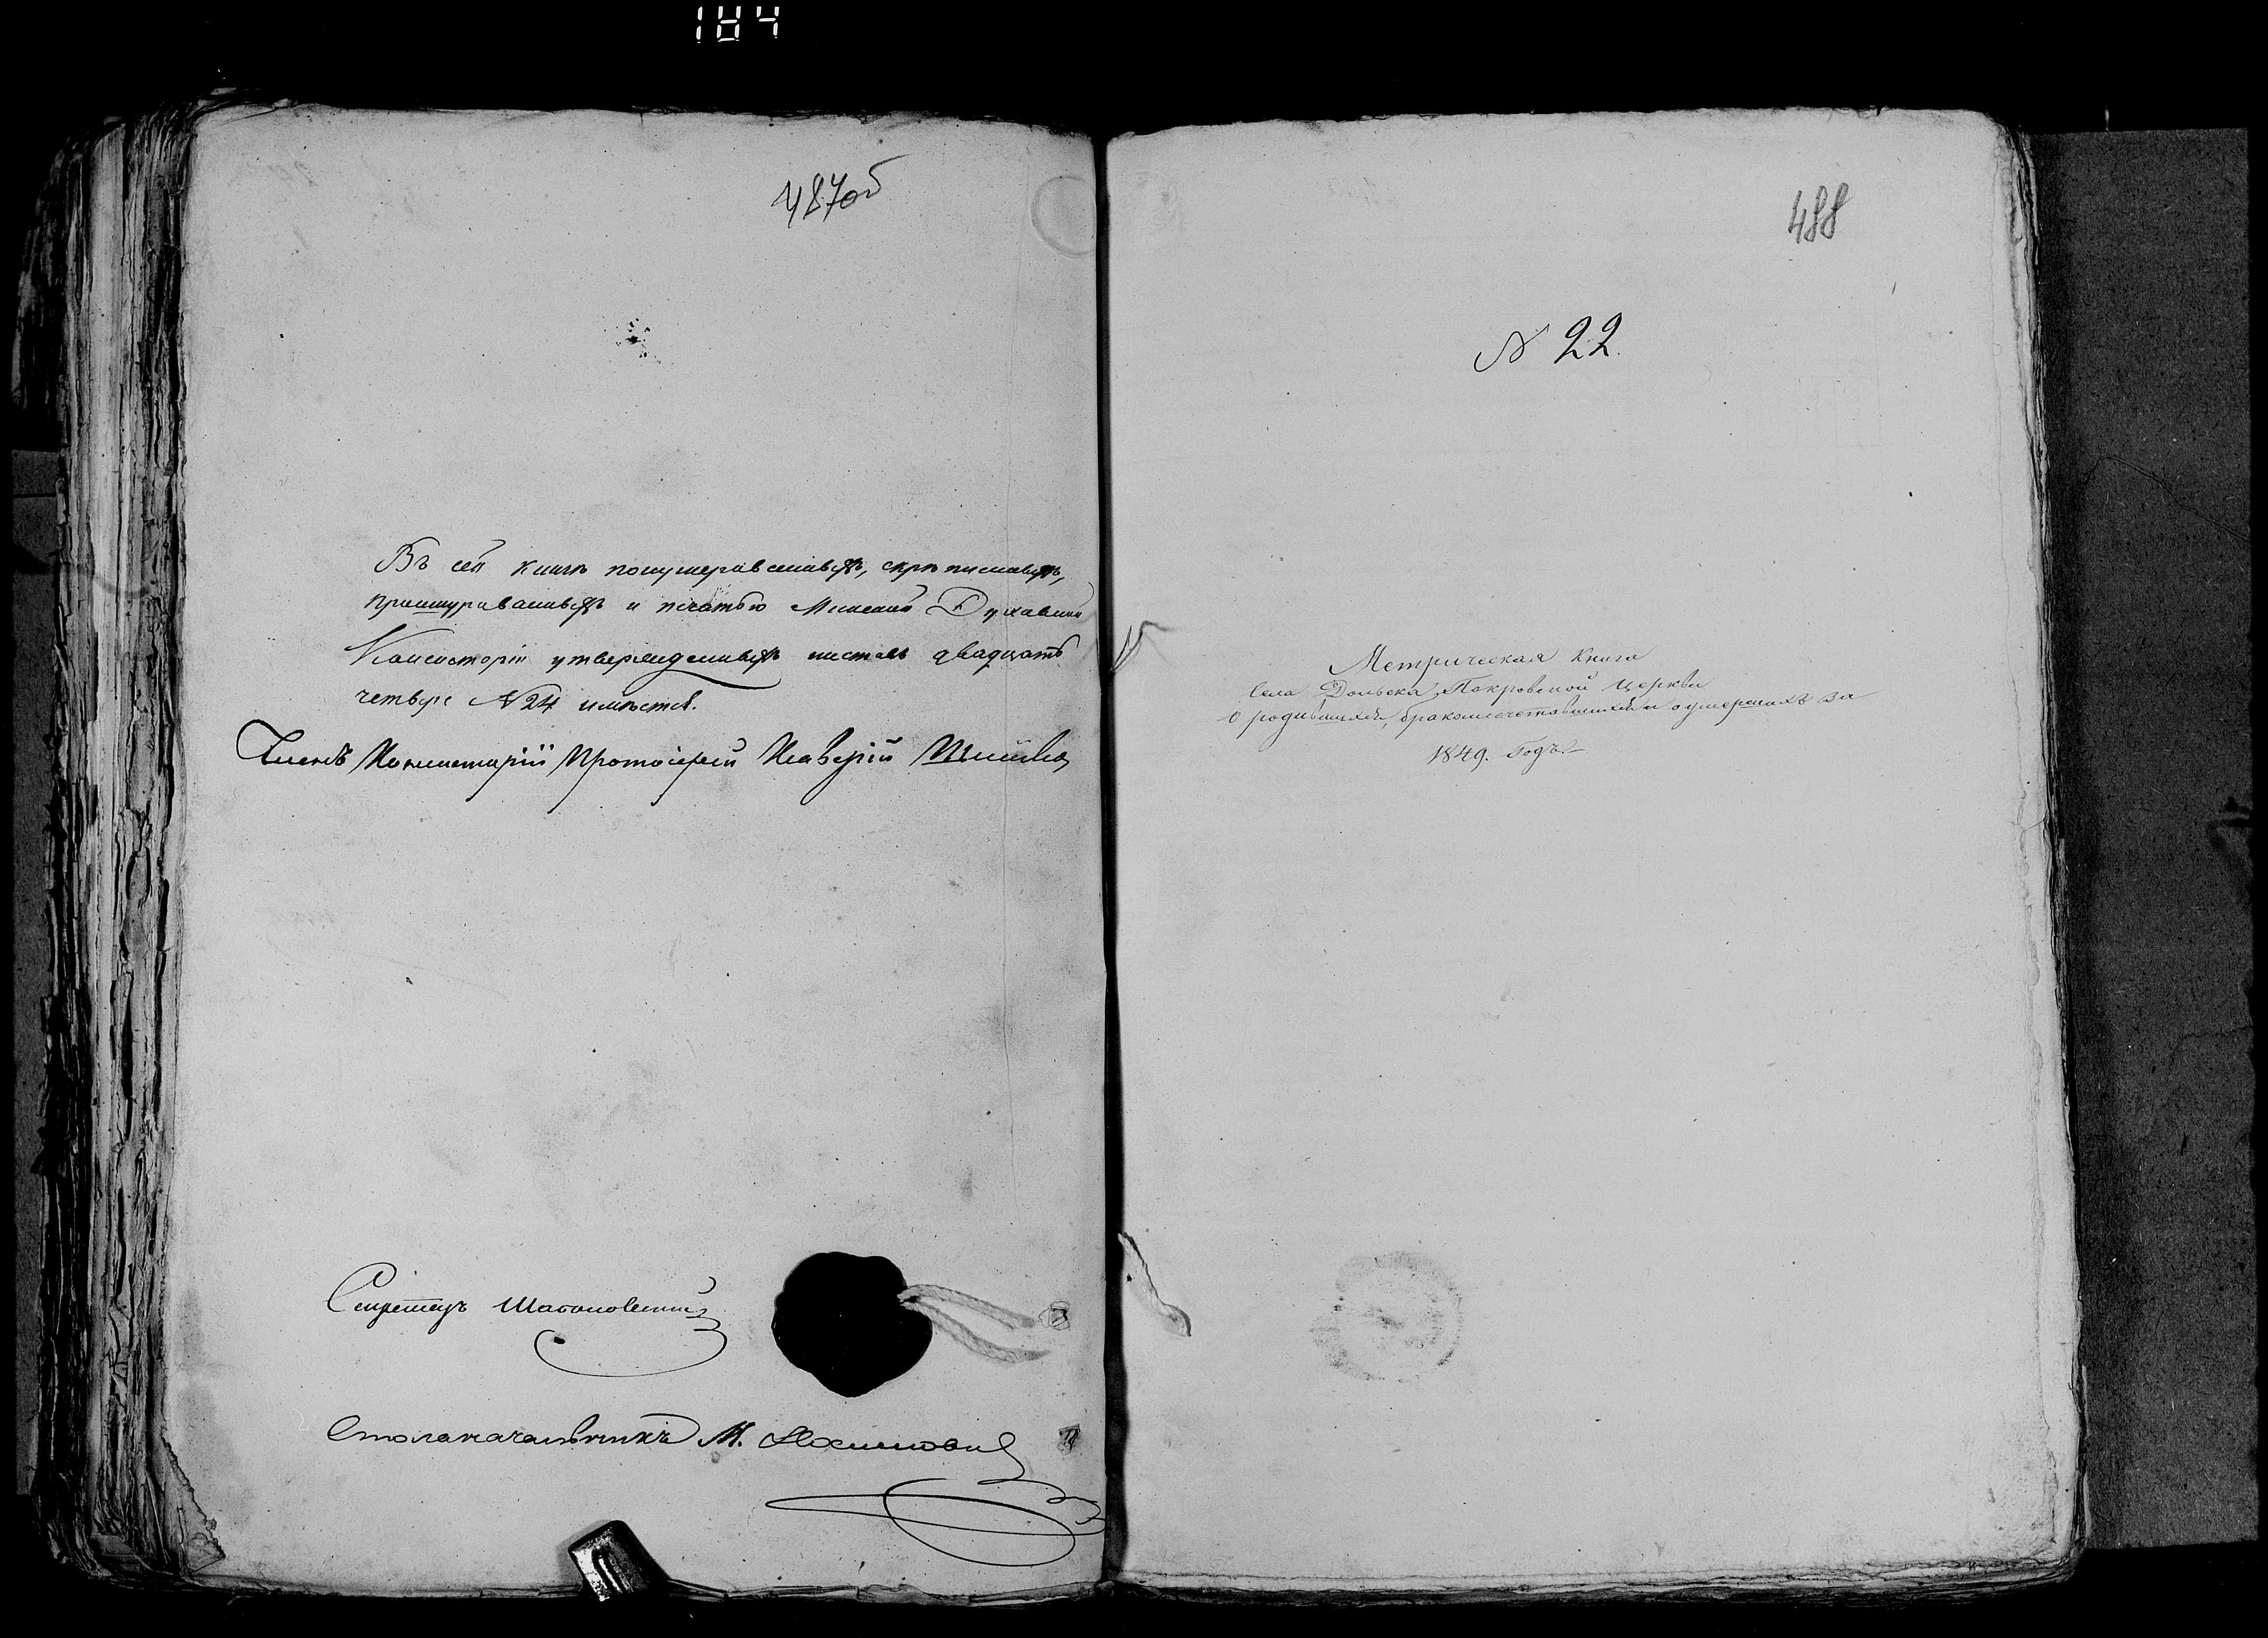 184
487об
Въ сей книгѣ понумерованныхъ, скрѣпленныхъ,
прошнурованныхъ и печатью Минской Духовной
Консисторіи утвержденныхъ листовъ двадцать
четыре №24 имѣется.
Членъ Консисторіи Протоіерей
Секретарь
Столоначальникъ М.
488
N 22.
Метрическая Книга
Села Дольска, Покровской Церкви
о родившихся, бракосочетавшихся и о умершихъ за
1849. Годъ.